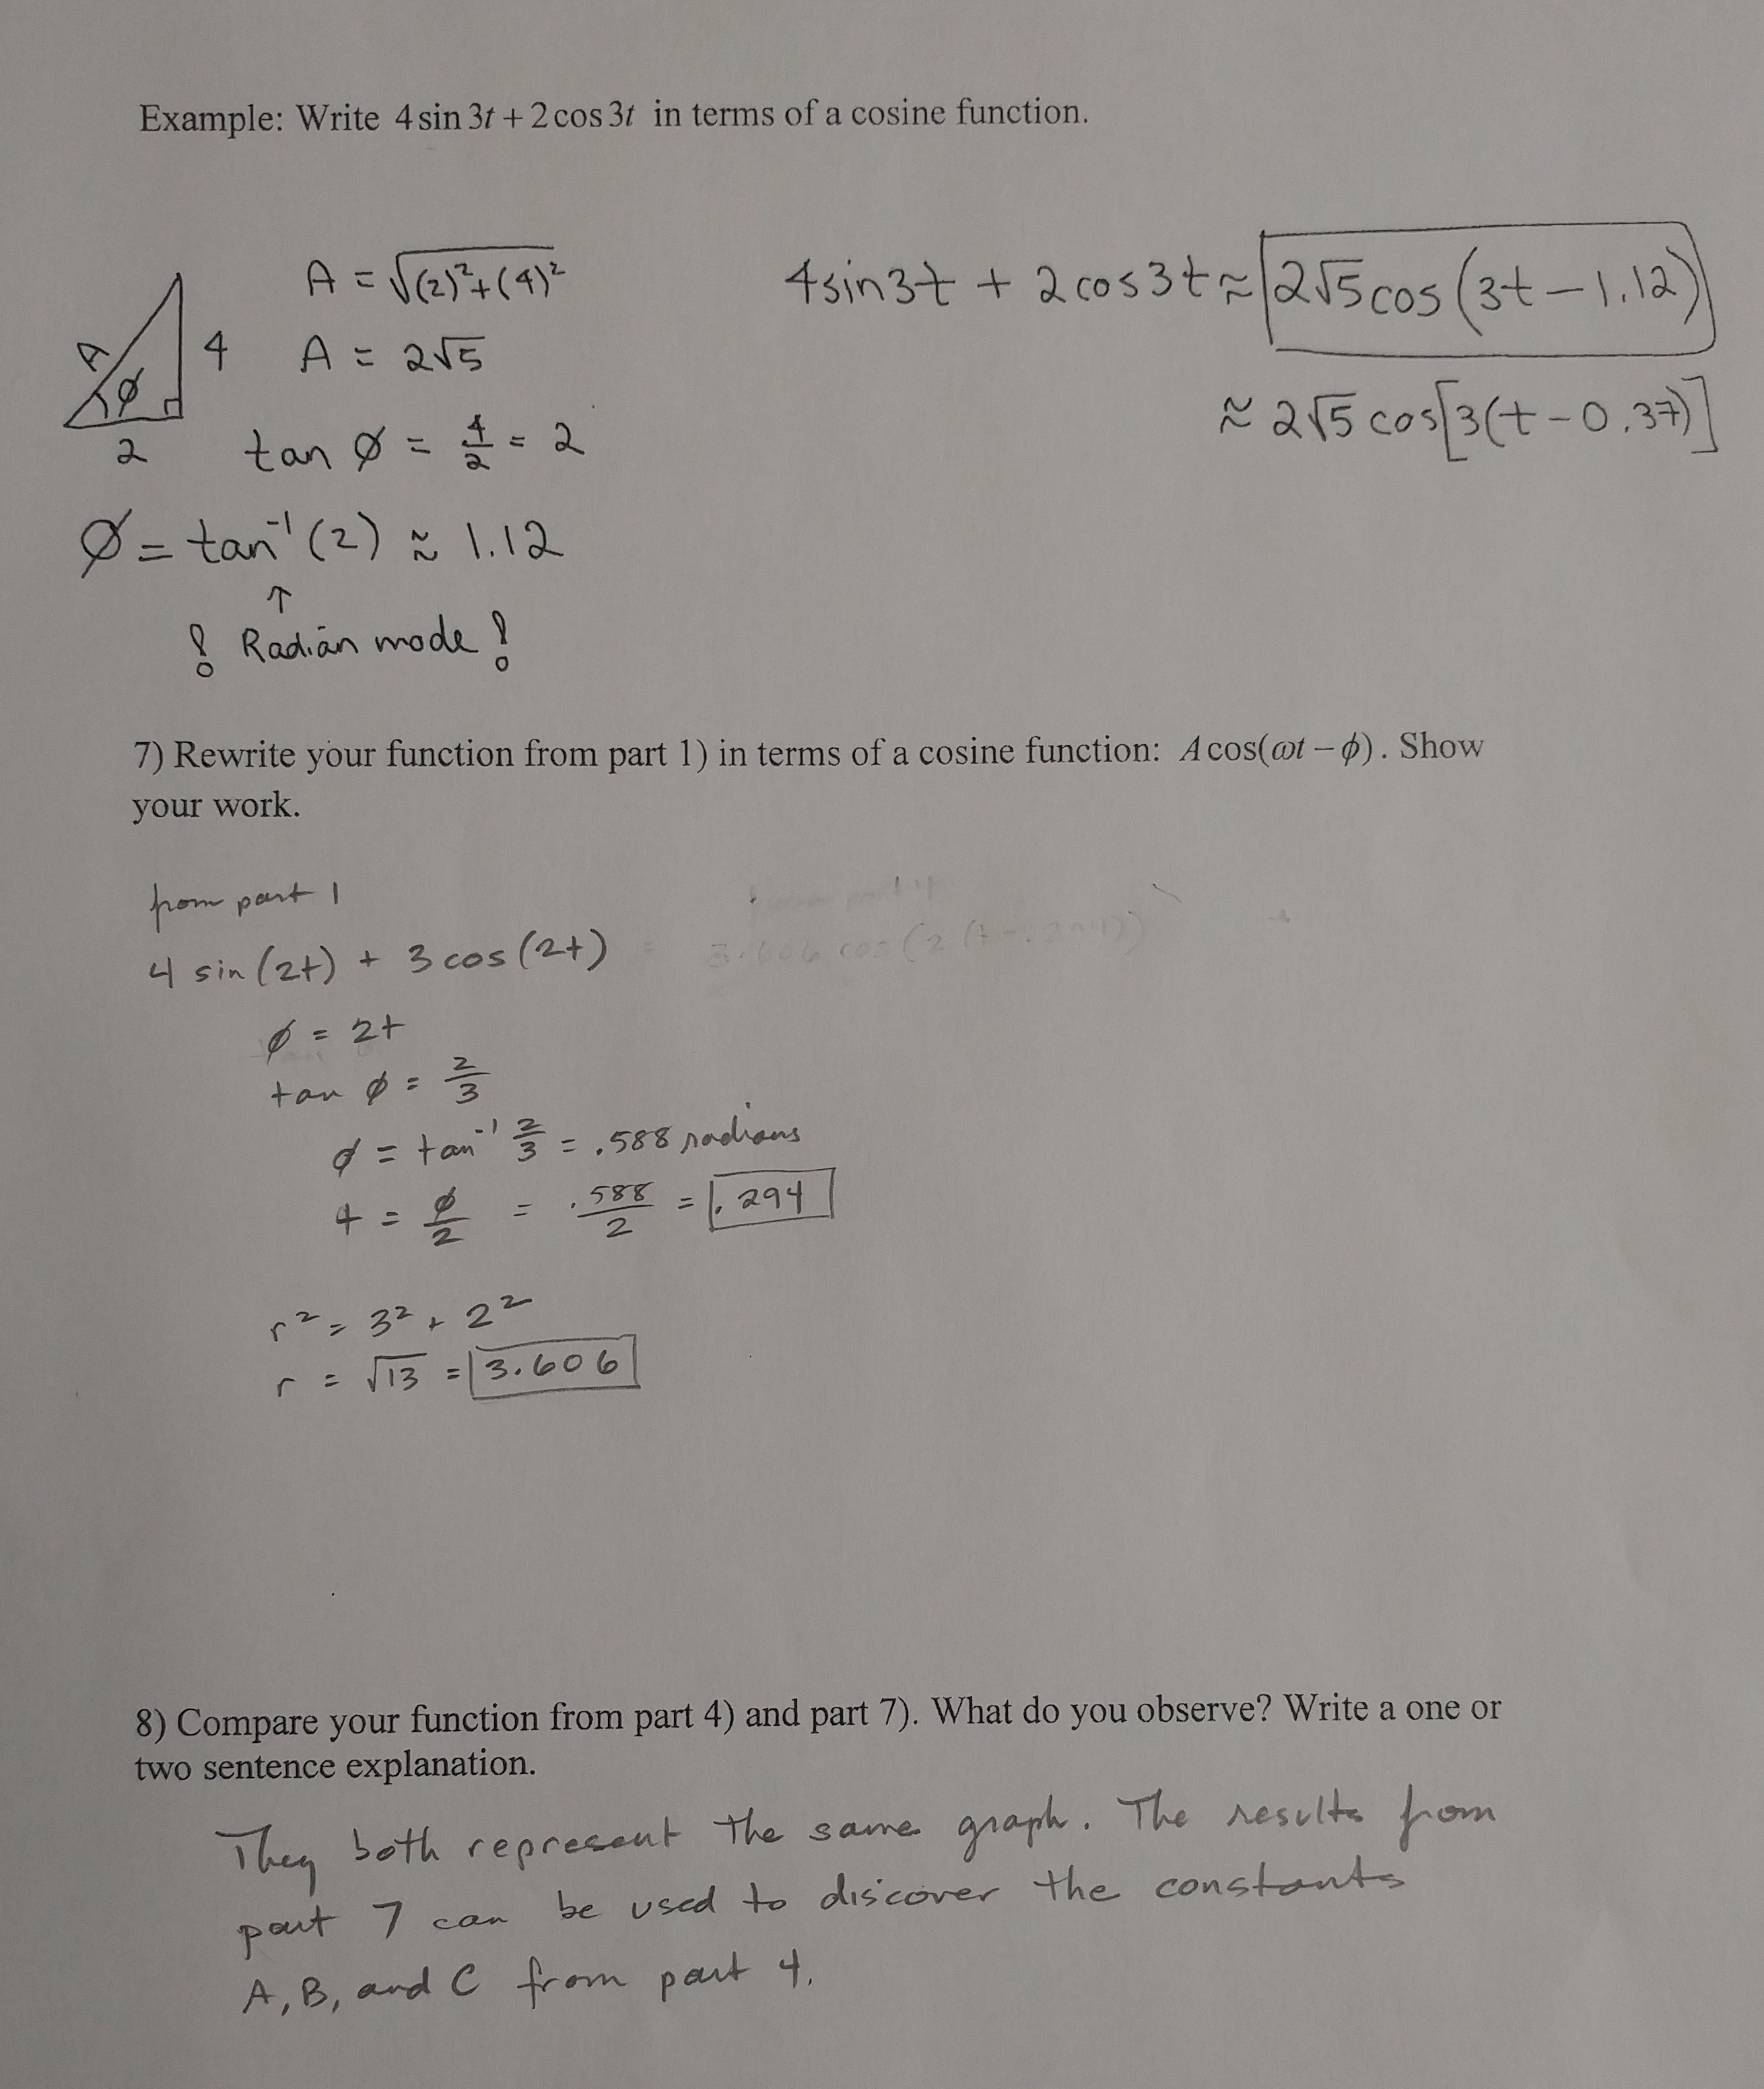 Example: Write 4 sin 3t + 2 cos 3t in terms of a cosine function.
A = √(2)² + (4)²
4 sin 3t + 2 cos 3t ≈ 2√5 cos (3t – 1.12)
A
4
A = 2√5
∅
≈ 2√5 cos[3(t – 0.37)]
2
tan ∅ = 4/2 = 2
∅ = tan⁻¹ (2) ≈ 1.12
↑
! Radian mode !
7) Rewrite your function from part 1) in terms of a cosine function: A cos(ωt – ϕ). Show
your work.
from part 1
4 sin (2t) + 3 cos (2t)
∅ = 2t
tan ∅ = 2/3
∅ = tan⁻¹ 2/3 = .588 radians
t = ∅/2 = .588/2 = .294
r² = 3² + 2²
r = √13 = 3.606
8) Compare your function from part 4) and part 7). What do you observe? Write a one or
two sentence explanation.
They both represent the same graph. The results from
part 7 can be used to discover the constants
A, B, and C from part 4.